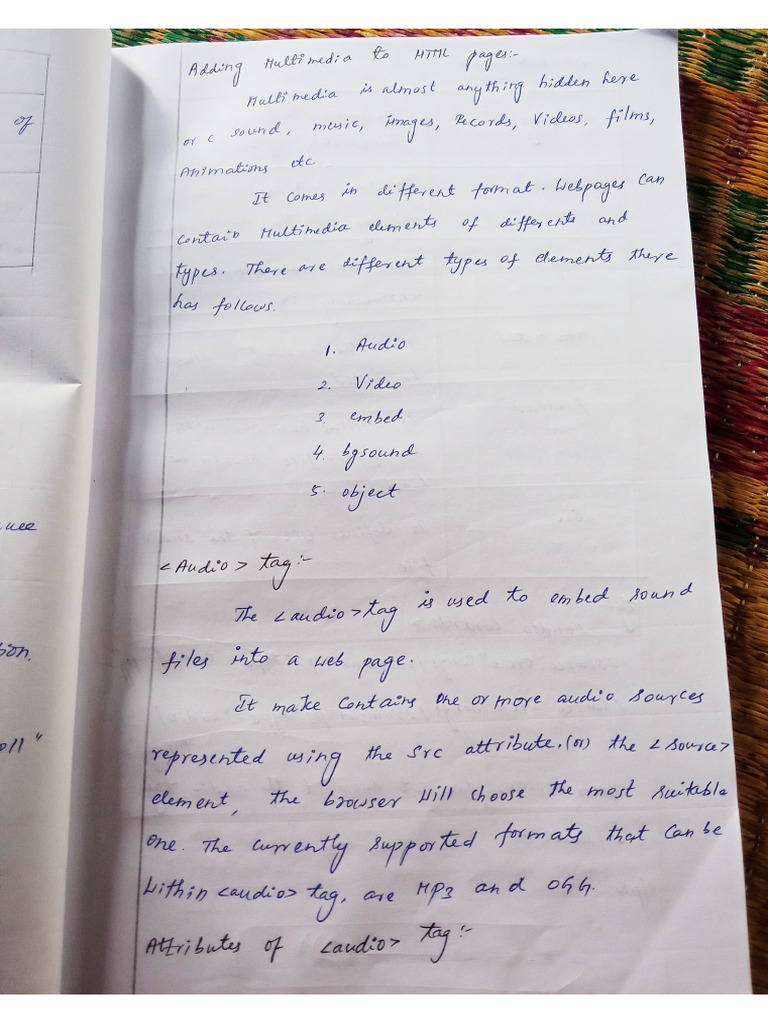 of
Adding Multimedia to HTML pages:-
Multimedia is almost anything hidden here
or c sound, music, images, Records, Videos, films,
Animations etc
It comes in different format. Webpages can
contain Multimedia elements of differents and
types. There are different types of elements there
has follows.
1. Audio
2. Video
3. embed
4. bgsound
5. object
<Audio> tag:-
The <audio> tag is used to embed sound
files into a web page.
It make contains one or more audio sources
represented using the src attribute. (or) the <source>
element, the browser will choose the most suitable
one. The currently supported formats that can be
within <audio> tag, are MP3 and OGG.
Attributes of <audio> tag:-